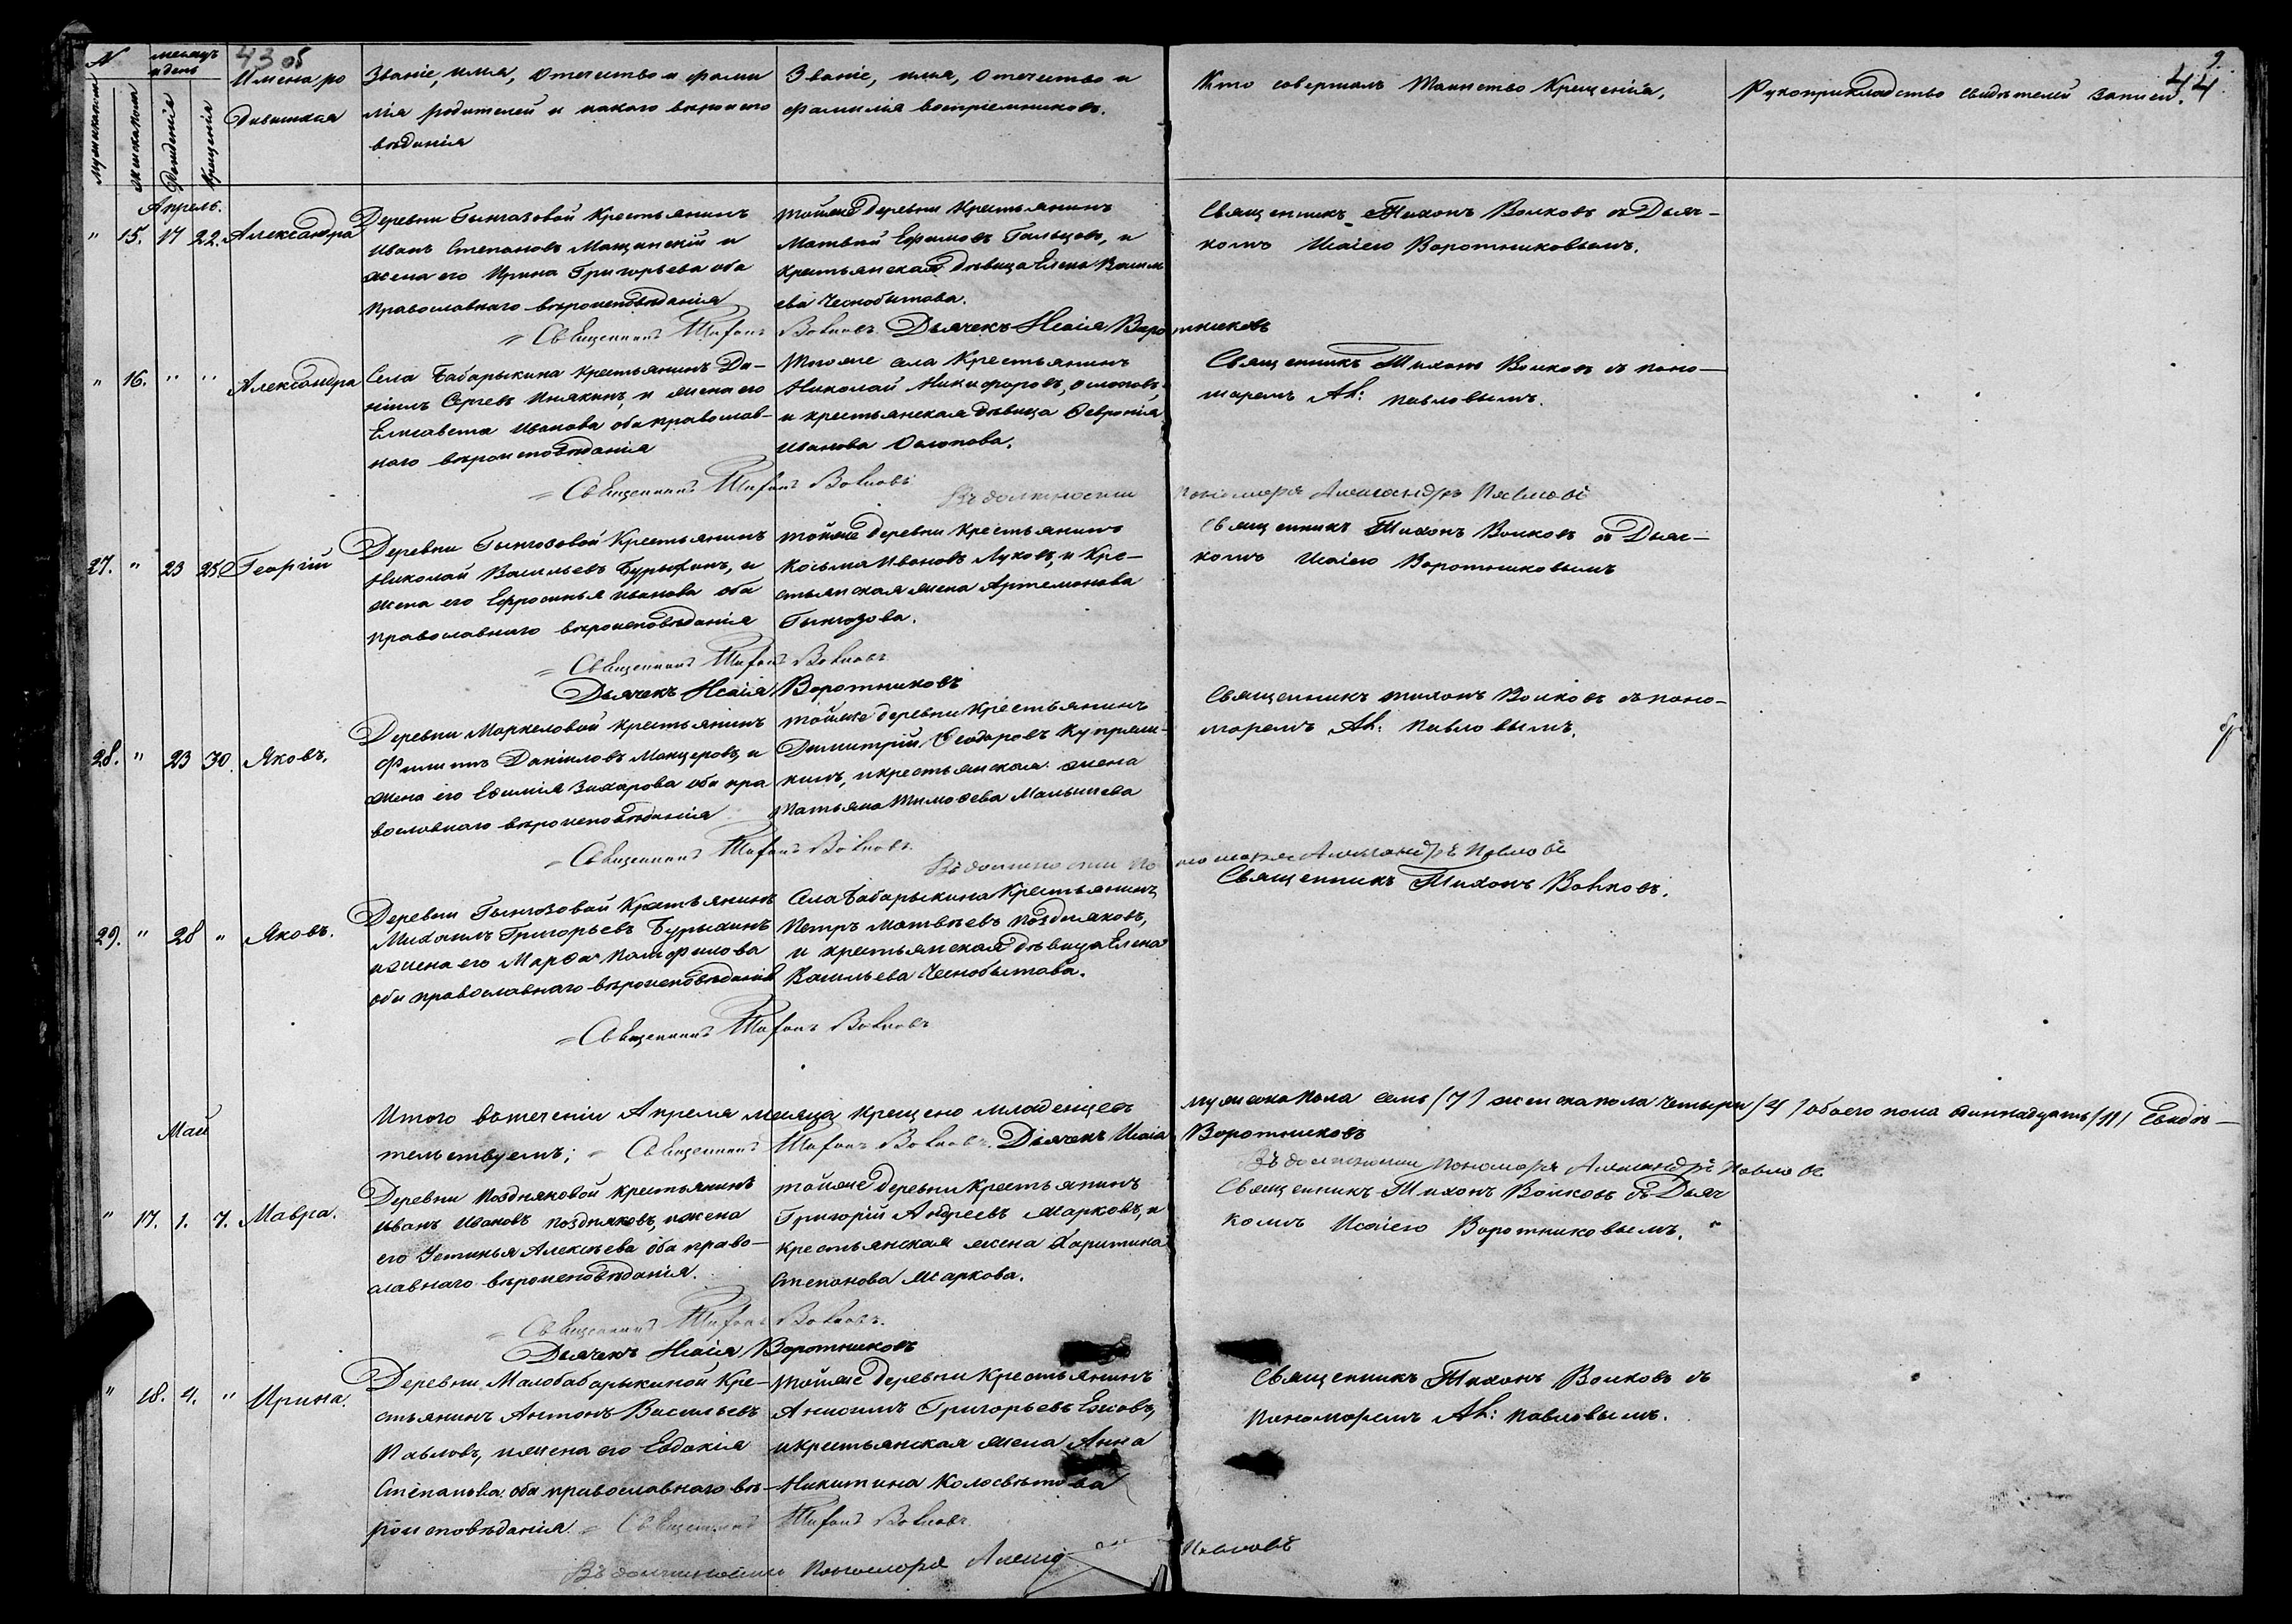 43 об
9.
44
N
месяцъ
и день
Мужескаго пола
Женскаго пола
Рожденія
Крещенія
Имена ро
дившихся
Званіе, имя, отечество и фами
лія родителей и какого вероиспо
веданія
Званіе, имя, отечество и
фамилія воспріемниковъ.
Кто совершалъ Таинство Крещенія,
Рукоприкладство свидетелей записи.
Апрель.
" 15. 17 22. Александра
Деревни Крестьянинъ
Иванъ Степановъ и
жена его Ирина Григорьева оба
православнаго вероисповеданія
тойже деревни Крестьянинъ
Матвей Ефимовъ и
крестьянская девица Елена Василь
ева Чеснобытова.
Священникъ Тихонъ Волковъ съ Дьяч-
комъ Исаіею Воротниковымъ.
Священникъ Тихонъ Волковъ. Дьячекъ Исаія Воротниковъ
" 16. " " Александра
Села Бабарыкина крестьянинъ Да-
ніилъ Сергеевъ и жена его
Елисавета Иванова оба православ-
наго вероисповеданія
Тогоже села Крестьянинъ
Николай Никифоровъ
и крестьянская девица Ѳевронія
Иванова
Священникъ Тихонъ Волковъ съ поно-
маремъ Ал: Павловымъ.
Священникъ Тихонъ Волковъ
Въ должности пономаря Александръ Павловъ
27. " 23 25 Георгій
Деревни Крестьянинъ
Николай Васильевъ Бурыхинъ, и
жена его Ефросинья Иванова оба
православнаго вероисповеданія
тойже деревни крестьянинъ
Козьма Ивановъ Луковъ, и Кре-
стьянская жена Артемонова
Священникъ Тихонъ Волковъ съ Дьяч-
комъ Исаіею Воротниковымъ
Священникъ Тихонъ Волковъ
Дьячекъ Исаія Воротниковъ
28. " 23 30. Яковъ.
Деревни Маркеловой крестьянинъ
Филиппъ Даниловъ и
жена его Евѳимія Захарова оба пра
вославнаго вероисповеданія
тойже деревни Крестьянинъ
Димитрій Ѳеодоровъ
и крестьянская жена
Татьяна Тимоѳеева Малышева
Священникъ Тихонъ Волковъ съ поно-
маремъ Ал: Павловымъ.
Священникъ Тихонъ Волковъ.
Въ должности пономаря Александръ Павловъ
29. " 28 " Яковъ.
Деревни Крестьянинъ
Михаилъ Григорьевъ Бурыхинъ
и жена его Марѳа
оба православнаго вероисповеданія
Села Бабарыкина Крестьянинъ
Петръ Матвеевъ Поздняковъ,
и крестьянская девица Елена
Васильева Чеснобытова.
Священникъ Тихонъ Волковъ.
Священникъ Тихонъ Волковъ
Итого въ теченіи Апреля месяца крещено младенцевъ мужеска пола семь /7/ женска пола четыри /4/ обоего пола одиннадцать /11/ Свиде-
тельствуемъ; Священникъ Тихонъ Волковъ. Дьячекъ Исаія Воротниковъ
Въ должности пономаря Александръ Павловъ
Май
" 17. 1. 7. Мавра.
Деревни Поздняковой крестьянинъ
Иванъ Ивановъ Поздняковъ, и жена
его Устинья Алексеева оба право-
славнаго вероисповеданія.
тойже деревни крестьянинъ
Григорій Андреевъ Марковъ, и
крестьянская жена Харитина
Степанова Маркова.
Священникъ Тихонъ Волковъ съ Дьяч
комъ Исаіею Воротниковымъ.
Священникъ Тихонъ Волковъ.
Дьячекъ Исаія Воротниковъ
" 18. 4. " Ирина.
Деревни Малобабарыкиной Кре-
стьянинъ Антонъ Васильевъ
Павловъ, и жена его Евдокія
Степанова оба православнаго ве-
роисповеданія.
тойже деревни крестьянинъ
Анисимъ Григорьевъ
и крестьянская жена Анна
Никитина Колосветова
Священникъ Тихонъ Волковъ съ
пономаремъ Ал: Павловымъ.
Священникъ Тихонъ Волковъ
Въ должности пономаря Павловъ